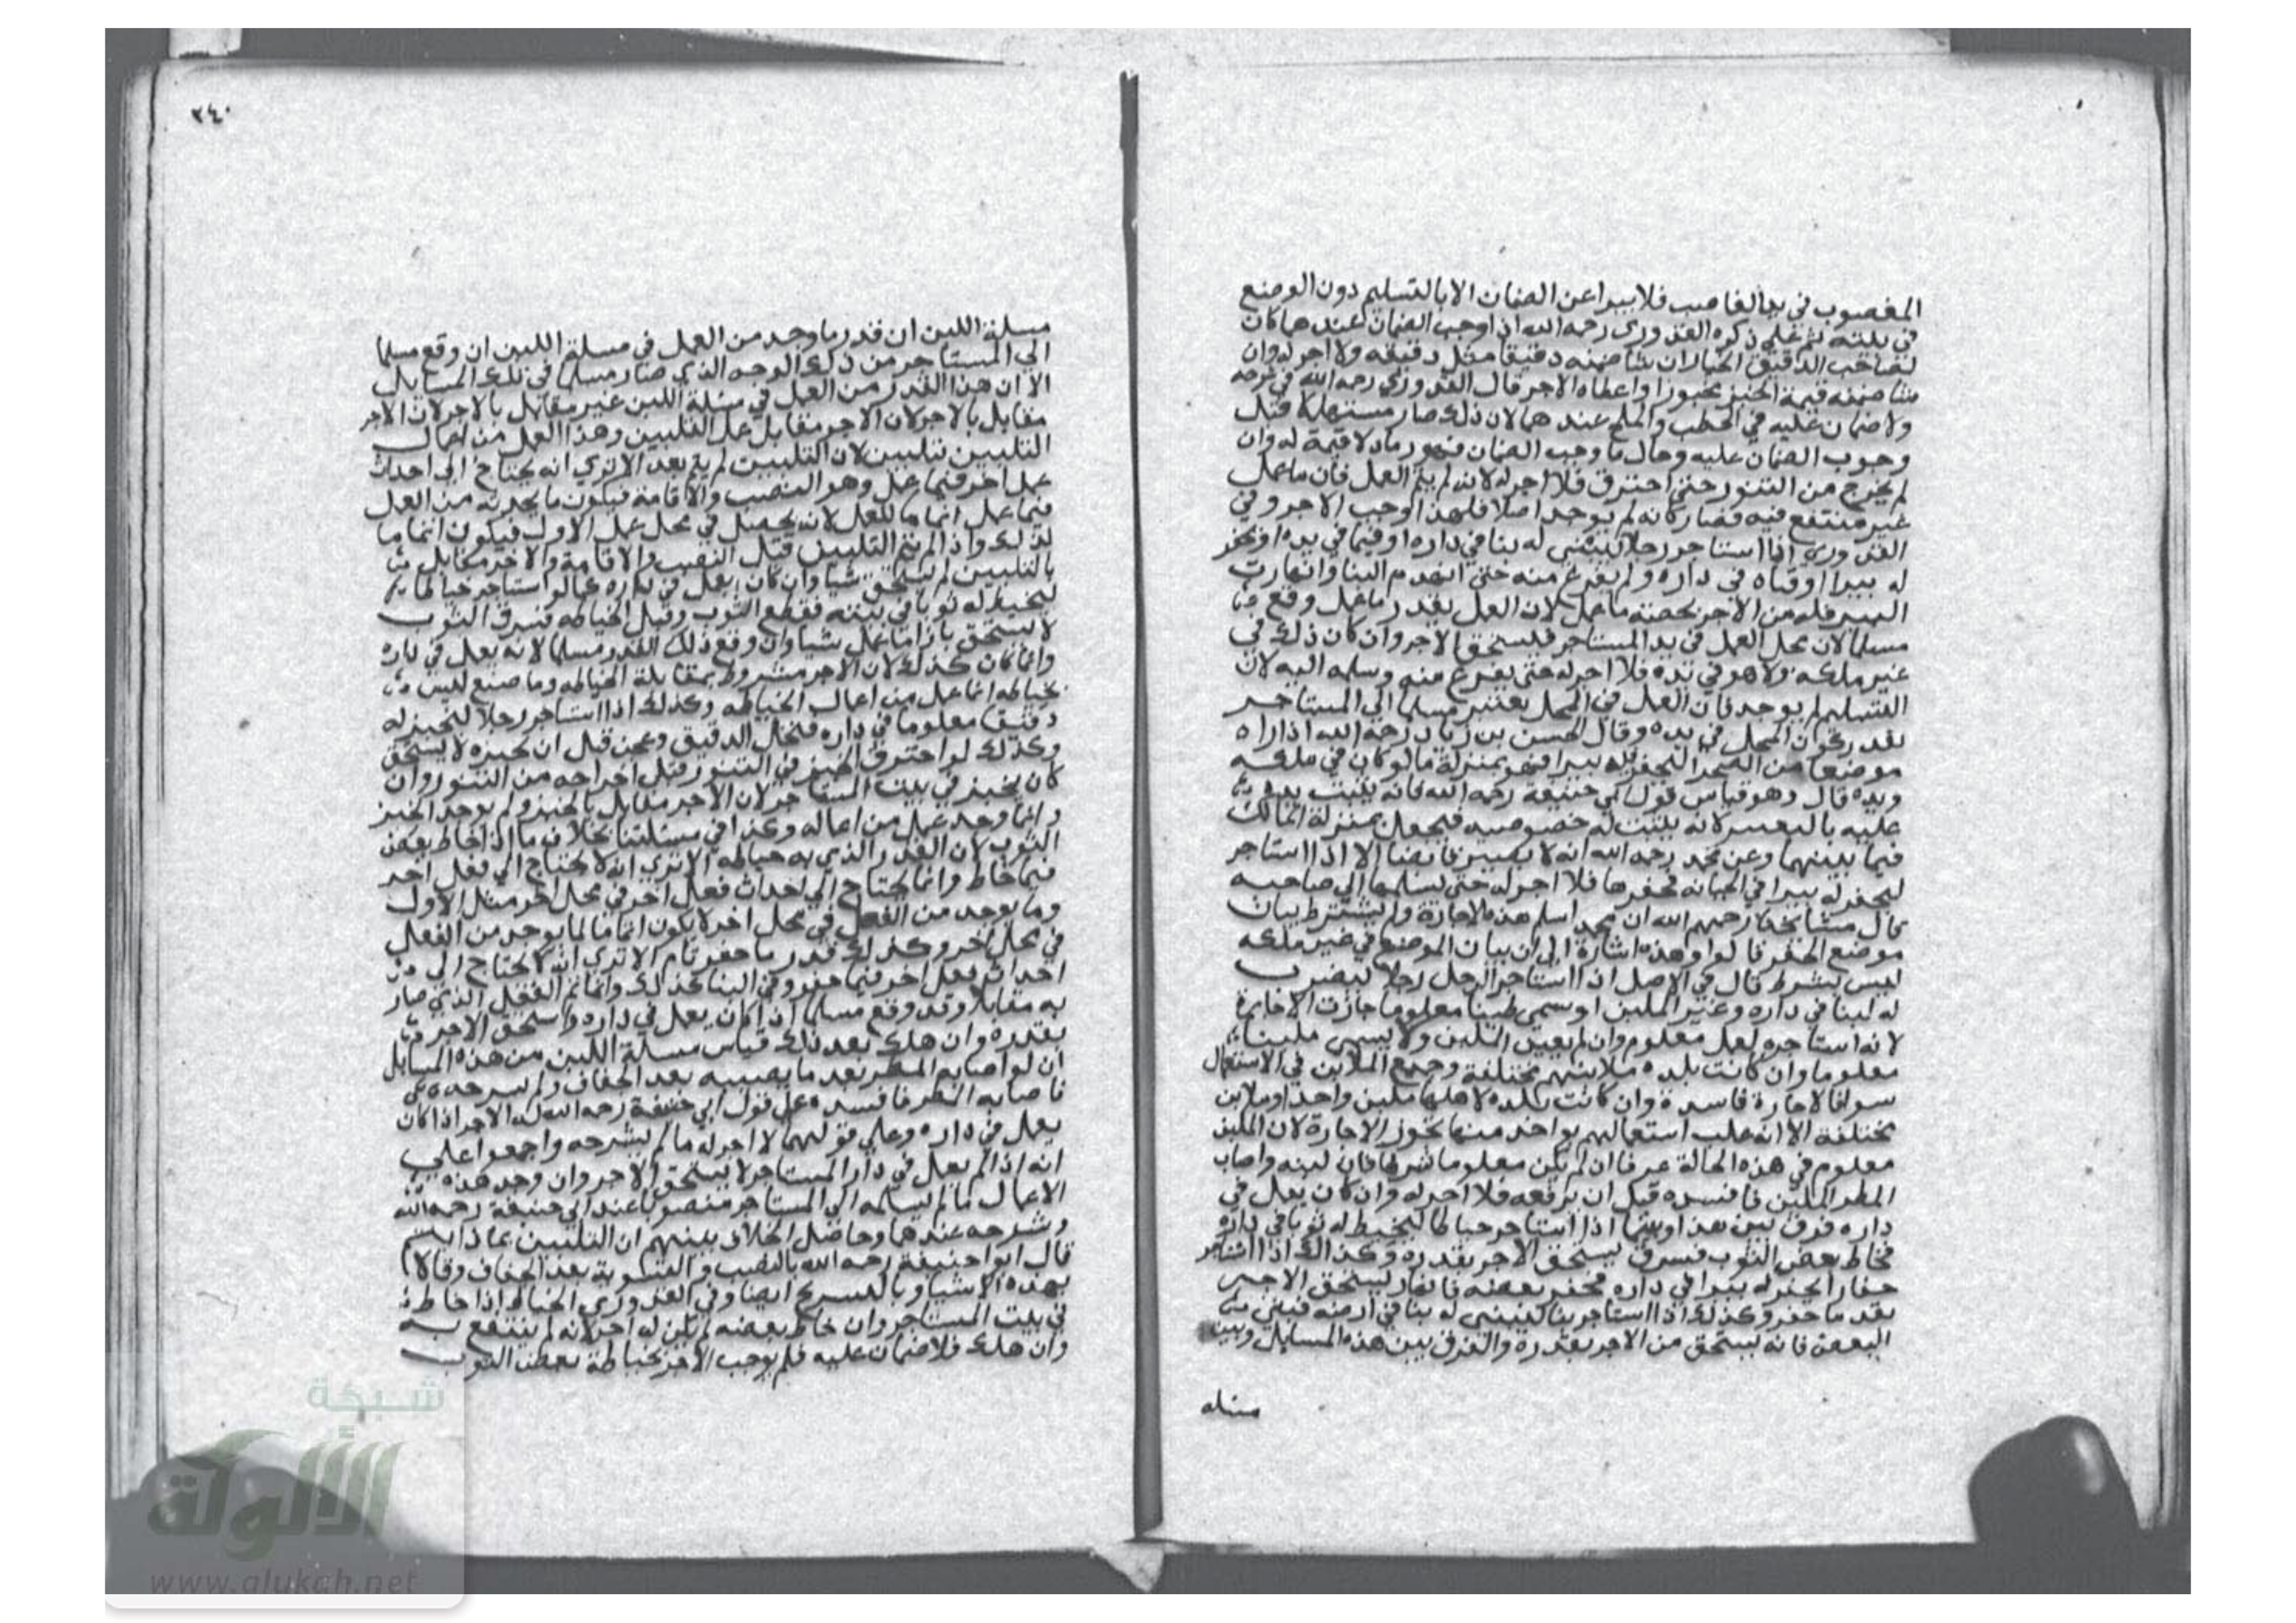 المغصوب في يد الغاصب فلا يبرا عن الضمان الا بالتسليم دون الوضع
في بيته ثم على ذكره القدوري رحمه الله اذا وجب الضمان عندهما كان
لصاحب الدقيق الخيار ان شا ضمنه دقيقا مثل دقيقه ولا اجر له وان
شا ضمنه قيمة الخبز مخبوزا واعطاه الاجر قال القدوري رحمه الله في شرحه
ولا ضمان عليه في الحطب والملح عندهما لان ذلك صار مستهلكا قبل
وجوب الضمان عليه وحال ما وجب الضمان فهو رماد لا قيمة له وان
لم يخرج من التنور حتى احترق فلا اجر له لانه لم يتم العمل فان ما عمل
غير منتفع فيه فصار كانه لم يوجد اصلا فلهذا لوجب الاجر وفي
القدوري اذا استاجر رجلا ليبني له بنا في داره او فيما في يده او يحفر
له بيرا او قناه في داره ولم يفرغ منه حتى انهدم البنا وانهارت
البير فله من الاجر بحصته ما عمل لان العمل بقدر ما عمل وقع
مسلما لان محل العمل في يد المستاجر فيستحق الاجر وان كان ذلك في
غير ملكه ولا هو في يده فلا اجر له حتى يفرغ منه وسلمه اليه لان
التسليم لم يوجد فان العمل في المحل يعتبر مسلما الى المستاجر
بقدر كون المحل في يده وقال الحسن بن زياد رحمه الله اذا اراه
موضعا من الصحرا ليحفر له بيرا فهو بمنزلة ما لو كان في ملكه
ويده قال وهو قياس قول ابي حنيفة رحمه الله فانه يثبت يده
عليه بالتعيين لانه يثبت له خصوصيه فيجعل بمنزلة المالك
فيما بينهما وعن محمد رحمه الله انه لا يصير قابضا الا اذا استاجر
ليحفر له بيرا في الجبانه فحفرها فلا اجر له حتى يسلمها الى صاحبه
قال مشايخنا رحمهم الله ان محمدا سلم هذه الاجارة ولم يشترط بيان
موضع الحفر قالوا وهذه اشارة الى ان بيان الموضع في غير ملكه
ليس بشرط قال في الاصل اذا استاجر الرجل رجلا ليضرب
له لبنا في داره وعين الملبن او سمى طينا معلوما جازت الاجارة
لانه استاجره لعمل معلوم وان لم يعين الملبن ولا يسمى ملبنا
معلوما وان كانت بلده ملابنهم مختلفة وجميع الملابن في الاستعمال
سوا فالاجارة فاسدة وان كانت بلده لاهلها ملبن واحد او ملابن
مختلفة الا انه غلب استعمالهم بواحد منها تجوز الاجارة لان الملبن
معلوم في هذه الحالة عرفا ان لم يكن معلوما شرطا فان لبنه واصاب
المطر الملبن فافسده قبل ان يرفعه فلا اجر له وان كان يعمل في
داره فرق بين هذا وبينما اذا استاجر خياطا ليخيط له ثوبا في داره
فخاط بعض الثوب فسرق يستحق الاجر بقدره وكذلك اذا استاجر
حفارا ليحفر له بيرا في داره فحفر بعضه فانهار يستحق الاجر
بقدر ما حفر وكذلك اذا استاجر بنا ليبني له بنا في ارضه فبنى
البعض فانه يستحق من الاجر بقدره والفرق بين هذه المسايل وبين
مسلة
٢٤٠
مسلة اللبن ان قدر ما وجد من العمل في مسلة اللبن ان وقع مسلما
الى المستاجر من ذلك الوجه الذي صار مسلما في تلك المسايل
الا ان هذا القدر من العمل في مسلة اللبن غير مقابل بالاجر لان الاجر
مقابل بالاجر لان الاجر مقابل بعمل التلبين وهذا العمل من اعمال
التلبين تلبين لان التلبين لم يتم بعد الا ترى انه يحتاج الى احداث
عمل اخر فيما عمل وهو النصب والاقامة فيكون ما يحدثه من العمل
فيما عمل اتماما للعمل لانه يحصل في محل عمل الاول فيكون اتماما
لذلك واذا لم يتم التلبين قبل النصب والاقامة والاجر مقابل
بالتلبين لم يستحق شيا وان كان يعمل في داره كما لو استاجر خياطا
ليخيط له ثوبا في بيته فقطع الثوب وقبل الخياطه فسرق الثوب
لا يستحق بازا ما عمل شيا وان وقع ذلك القدر مسلما لانه يعمل في داره
وانما كان كذلك لان الاجر مشروط بمقابلة الخياطه وما صنع ليس
بخياطه انما عمل من اعمال الخياطه وكذلك اذا استاجر رجلا ليخبز له
دقيقا معلوما في داره فنخل الدقيق وعجن قبل ان يخبزه لا يستحق
وكذلك لو احترق الخبز في التنور قبل اخراجه من التنور وان
كان يخبز في بيت المستاجر لان الاجر مقابل بالخبز ولم يوجد الخبز
وانما وجد عمل من اعماله وكذا في مسئلتنا بخلاف ما اذا خاط بعض
الثوب لان القدر الذي به خياطه الا ترى انه لا يحتاج الى فعل اخر
فيما خاط وانما يحتاج الى احداث فعل اخر في محل اخر مثل الاول
وما يوجد من الفعل في محل اخر لا يكون اتماما لما يوجد من الفعل
في محل اخر وكذلك قدر ما حفر تام الا ترى انه لا يحتاج الى
احداث فعل اخر فيما حفر وفي البنا كذلك وانما تم الفعل الذي صار
به مقابلا وقد وقع مسلما اذا كان يعمل في داره واستحق الاجر
بقدره وان هلك بعد ذلك قياس مسلة اللبن من هذه المسايل
ان لو اصابه المطر بعد ما يصيبه بعد الجفاف ولم يسرحه
فاصابه المطر فافسده على قول ابي حنيفة رحمه الله له الاجر اذا كان
يعمل في داره وعلى قولهما لا اجر له ما لم يشرجه واجمعوا على
انه اذا لم يعمل في دار المستاجر لا يستحق الاجر وان وجد هذه
الاعمال ما لم يسلمه الى المستاجر منصوبا عند ابي حنيفة رحمه الله
وشرجه عندهما وحاصل الخلاف بينهم ان التلبين بماذا يتم
قال ابو حنيفة رحمه الله بالنصب والتسوية بعد الجفاف وقالا
بهذه الاشيا وبالتسريج ايضا وفي القدوري الخياط اذا خاط
في بيت المستاجر وان خاط بعضه لم يكن له اجر لانه لم ينتفع به
وان هلك فلا ضمان عليه فلم يوجب الاجر بخياطة بعض الثوب
شبكة
الألوكة
www.alukah.net